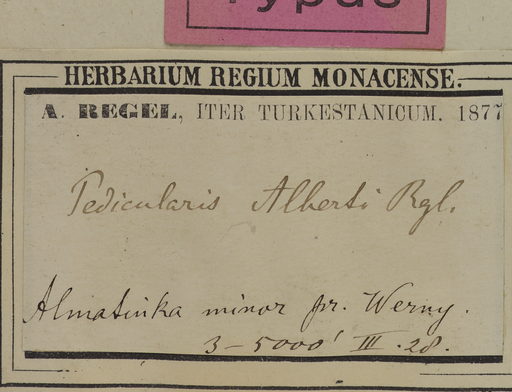 Typus
HERBARIUM REGIUM MONACENSE.
A. REGEL, ITER TURKESTANICUM. 1877
Pedicularis Alberti Rgl.
Almatinka minor pr. Werny.
3-5000' III.28.